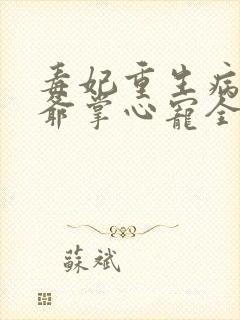 毒妃重生病
爺掌心寵全
蘇斌